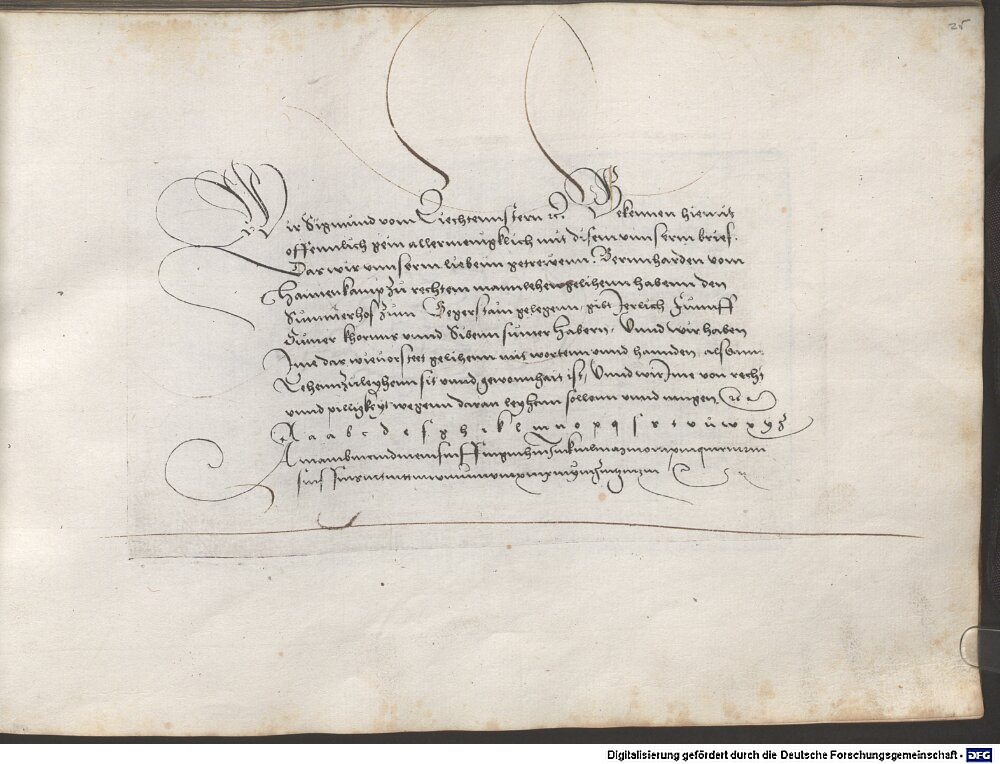 25
Wir Sigmund vom Liechtennstern ꝛc. Bekennen hiemit
offennlich gein allermenigklich mit disem unnserm brief.
Das wir unnserm liebenn getrewenn. Bernnharden vom
Hannenkamp zu rechtem mannlehen gelihenn habenn den
Summerhof zum gelegenn, gibt Jerlich
khorns unnd Siben sumer habern, Unnd wir haben
Jme das wie vorsteet gelihenn mit wortenn unnd hannden, als
Lehenn zuleyhenn sit unnd gewonnhait ist, Unnd wir Jme von recht
unnd pilligkeyt wegenn daran leyhenn sollenn unnd mugen ꝛc
A a b c d e f g h i k l m n o p q s r t v u w x y z
Digitalisierung gefördert durch die Deutsche Forschungsgemeinschaft - DFG